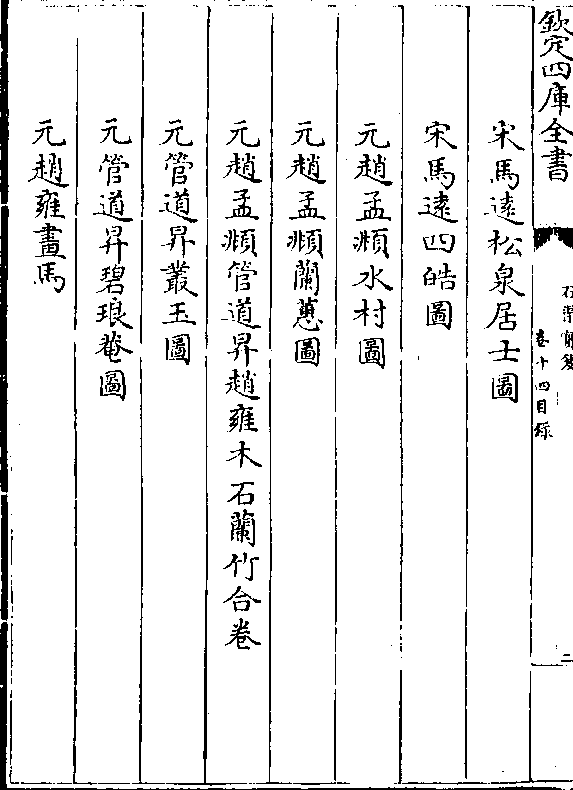 欽定四庫全書
石渠寶笈
卷十四目録
二
宋馬逺松泉居士圖
宋馬逺四皓圖
元趙孟頫水村圖
元趙孟頫蘭蕙圖
元趙孟頫管道昇趙雍木石蘭竹合卷
元管道昇叢玉圖
元管道昇碧琅菴圖
元趙雍畫馬